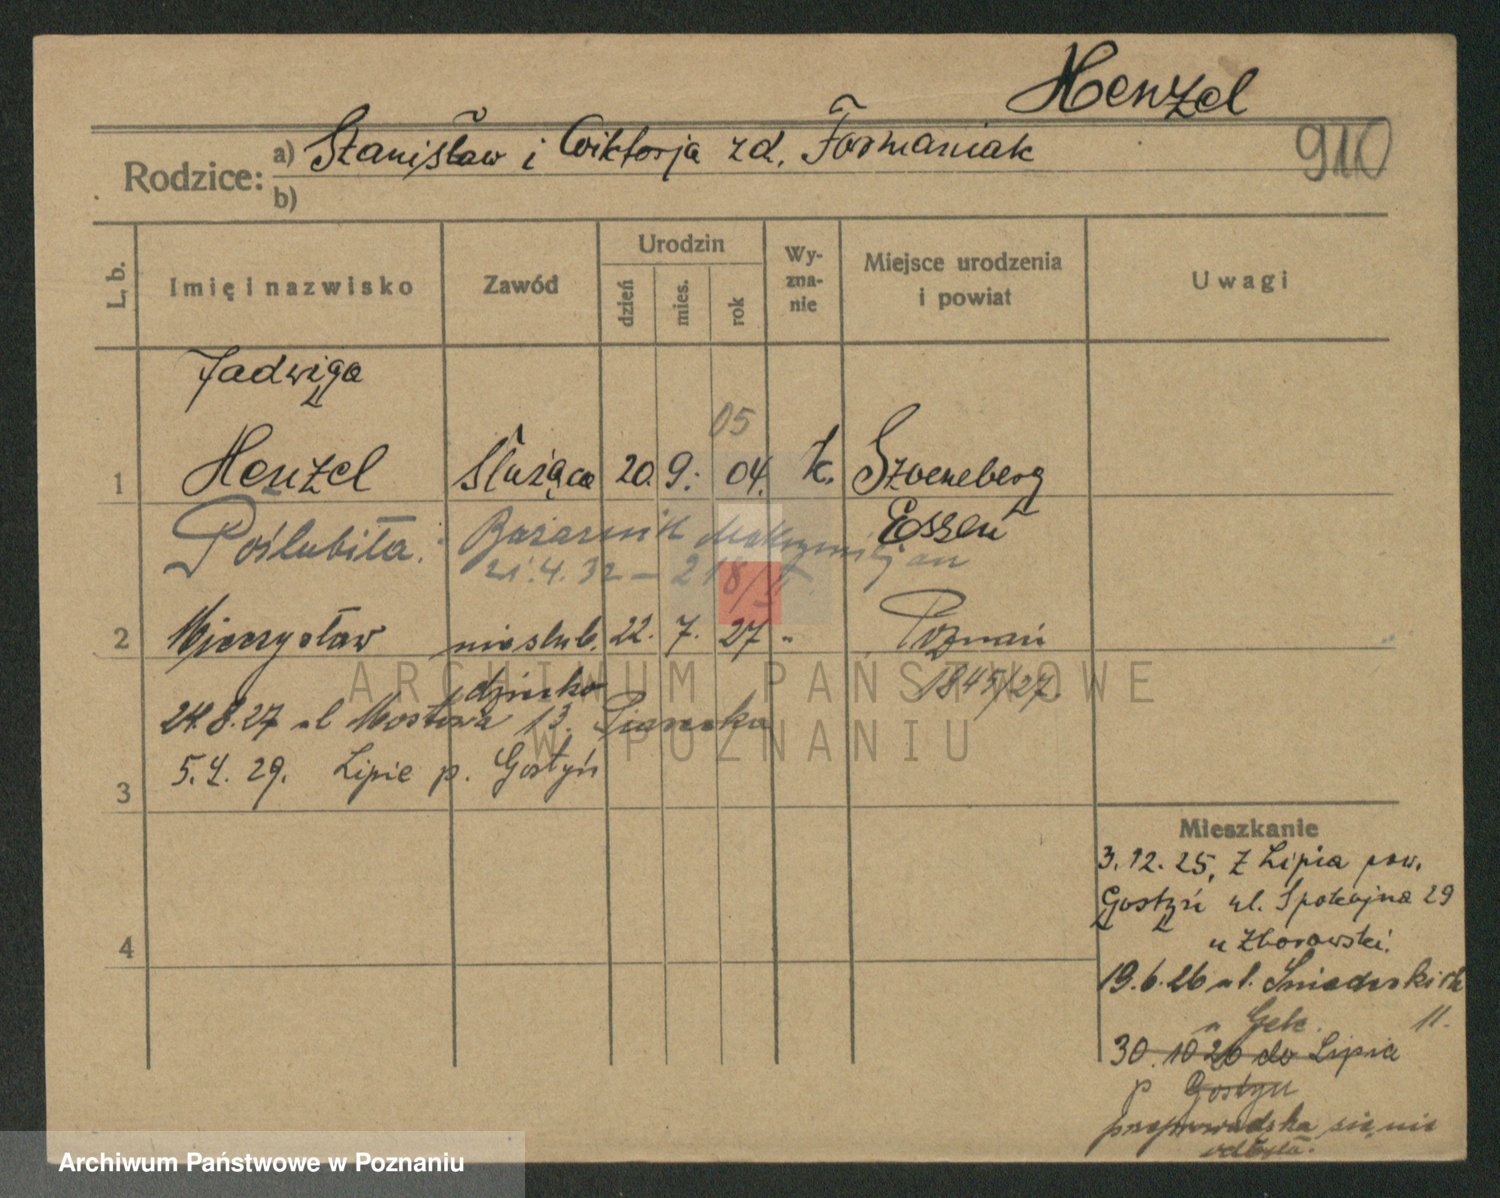 Henzel
910
Rodzice: a) Stanisław i Wiktorja zd. Formaniak
b)
L. b.
Imię i nazwisko
Zawód
Urodzin
dzień
mies.
rok
Wy-
zna-
nie
Miejsce urodzenia
i powiat
Uwagi
Jadwiga
05
1 Henzel służąca 20. 9. 04. k. Szoeneberg
Essen
Poślubiła: Bazarnik Maksymiljan
21.4.32 – 218/II
2 Mieczysław nieślub. 22. 7. 27 " Poznań
dziecko 1845/27.
24.8.27 ul Mostowa 13.
3 5.4.29. Lipie p. Gostyń
4
Mieszkanie
3.12.25. z Lipia pow.
Gostyń ul. Spokojna 29
u Zborowski.
19.6.26 ul. Śniadeckich
11.
30.10 26 do Lipia
p Gostyń
przeprowadzka się nie
odbyła.
ARCHIWUM PAŃSTWOWE
W POZNANIU
Archiwum Państwowe w Poznaniu